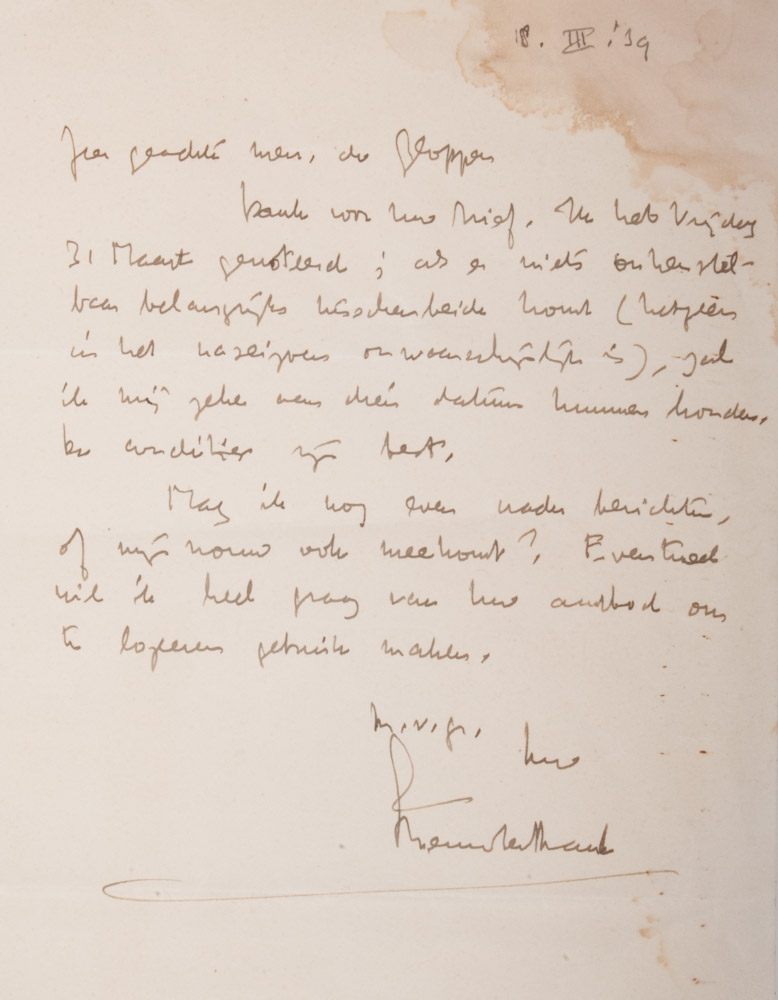 18. III. '39
Zeer geachte mevr. de
Dank voor Uw brief. Ik heb Vrijdag
31 Maart genoteerd; als er niets onherstel-
baar belangrijks tusschenbeide komt (hetgeen
in het nazeizoen onwaarschijnlijk is), zal
ik mij zeker aan dien datum kunnen houden.
De condities zijn best.
Mag ik nog even nader berichten,
of mijn vrouw ook meekomt? Eventueel
wil ik heel graag van Uw aanbod om
te logeeren gebruik maken.
M.v.gr.
Uw
Menno ter Braak